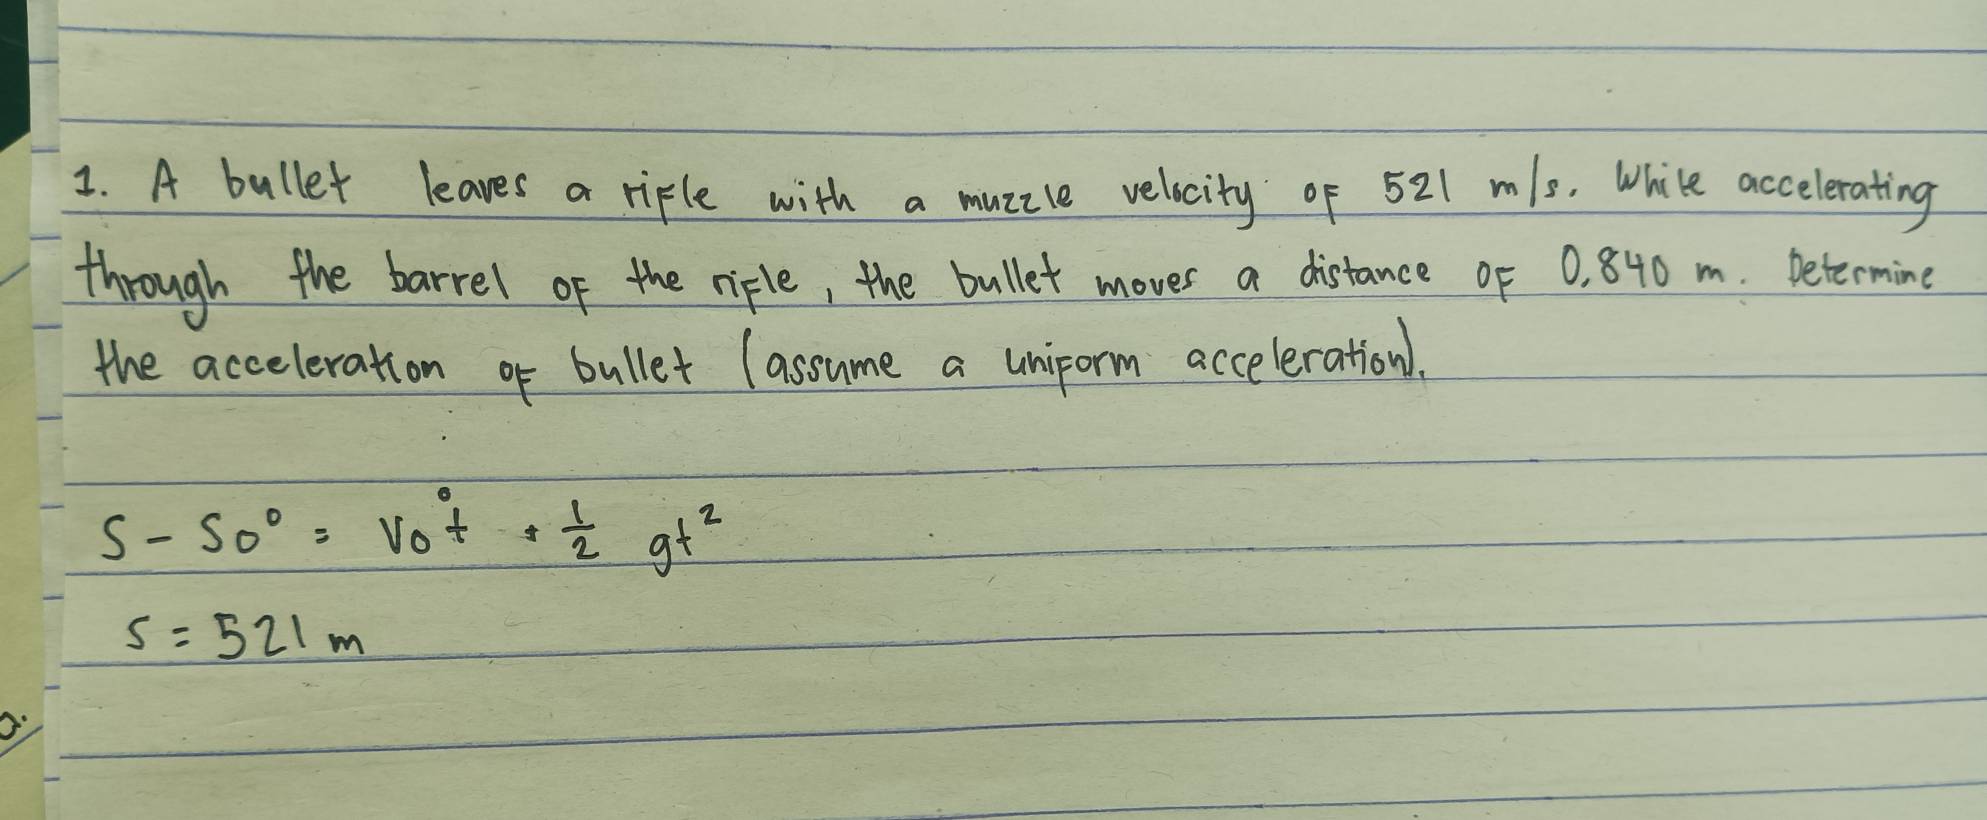 1. A bullet leaves a rifle with a muzzle velocity of 521 m/s. While accelerating
through the barrel of the rifle, the bullet moves a distance of 0.840 m. Determine
the acceleration of bullet (assume a uniform acceleration).
S - S0⁰ = V0t⁰ + 1/2 gt²
S = 521 m
2.